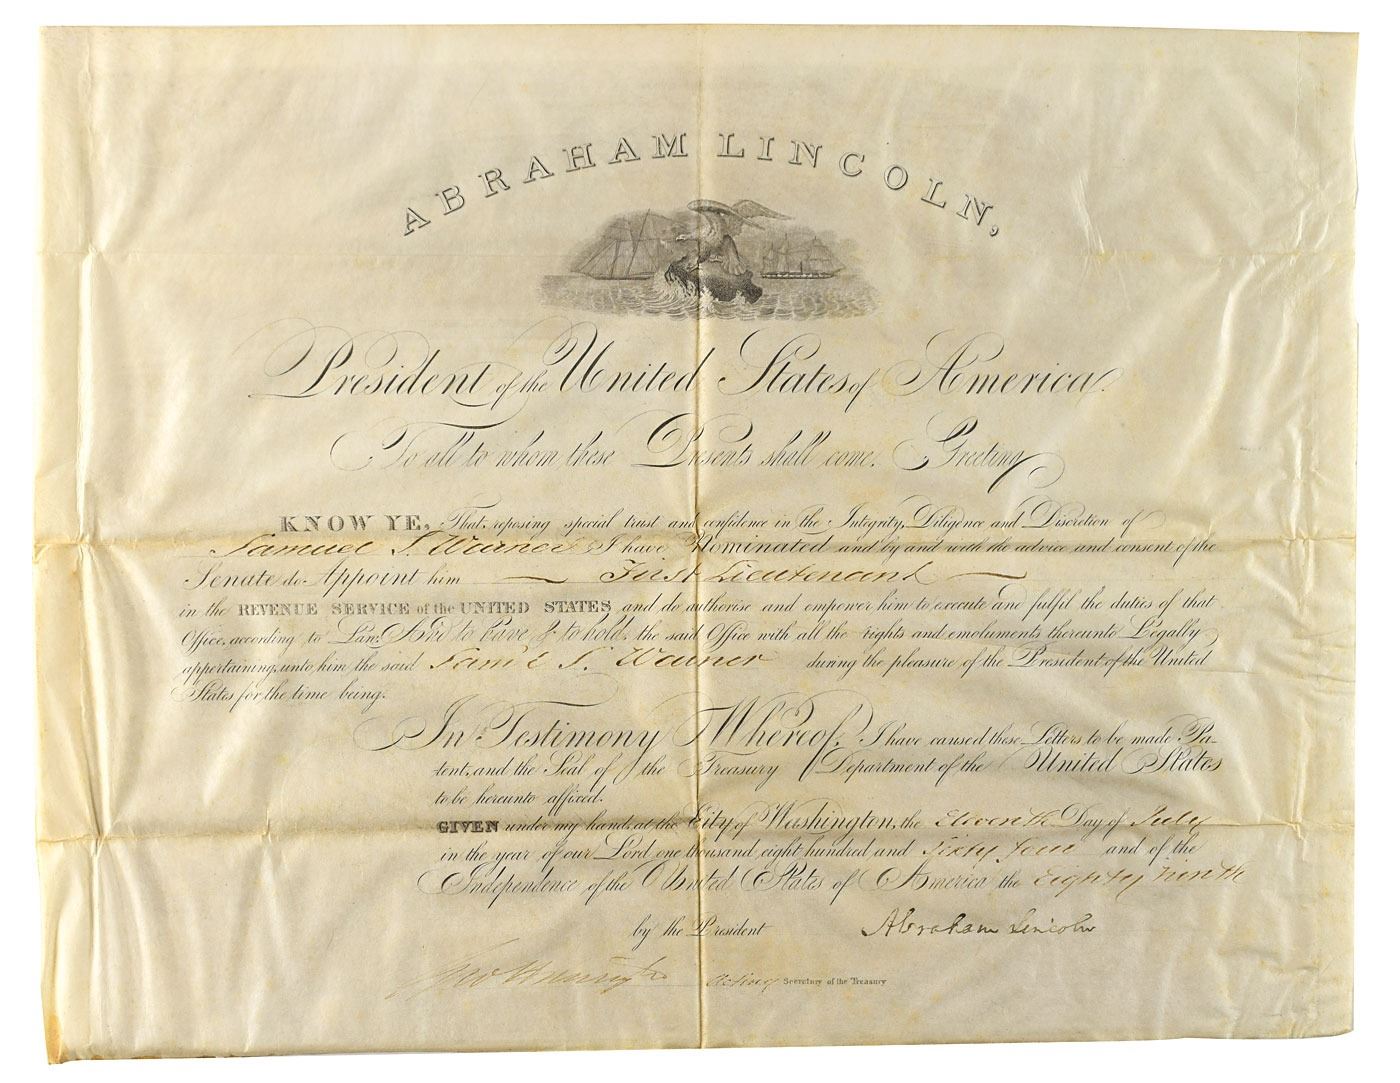 ABRAHAM LINCOLN,
President of the United States of America.
To all to whom these Presents shall come. Greeting
KNOW YE, That, reposing special trust and confidence in the Integrity, Diligence and Discretion of
Samuel S. Warner I have Nominated and by and with the advice and consent of the
Senate do Appoint him First Lieutenant
in the REVENUE SERVICE of the UNITED STATES and do authorise and empower him to execute and fulfil the duties of that
Office, according to Law: And to have, & to hold, the said Office with all the rights and emoluments thereunto Legally
appertaining, unto him, the said Sam'l S. Warner during the pleasure of the President of the United
States for the time being.
In Testimony Whereof, I have caused these Letters to be made Pa-
tent, and the Seal of the Treasury Department of the United States
to be hereunto affixed.
GIVEN under my hand, at the City of Washington, the Eleventh Day of July
in the year of our Lord one thousand eight hundred and Sixty four and of the
Independence of the United States of America the Eighty Ninth
by the President Abraham Lincoln
Geo Harrington Acting Secretary of the Treasury